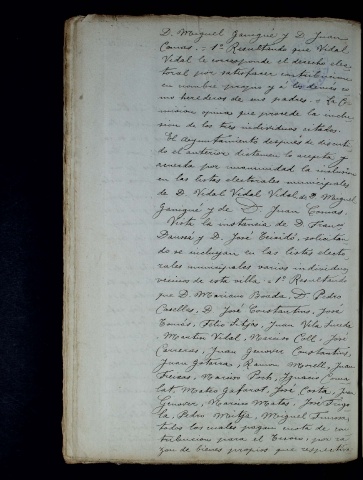 D. Miguel Ganigué y D. Juan
Comas. = 1º Resultando que Vidal
Vidal le corresponde el derecho elec-
toral por satisfacer contribucion
en nombre propio y á los demás co-
mo herederos de sus padres = La Co-
mision opina que procede la inclu-
sion de los tres individuos citados.
El Ayuntamiento después de discuti-
do el anterior dictamen lo acepta y
acuerda por unanimidad la inclusion
en las listas electorales municipales
de D. Vidal Vidal Vidal, de D. Miguel
Ganigué y de D. Juan Comas.
Vista la instancia de D. Franco
y D. José solicitan-
do se incluyan en las listas electo-
rales municipales varios individuos
vecinos de esta villa = 1º Resultando
que D. Mariano D. Pedro
Casellas, D. José Constantins, José
Tomás, Felio Sitjas, Juan Vila
Martin Vidal, Narciso Coll, José
Carreras, Juan Genover Constantins,
Juan Ramon Morell, Juan
Narciso Poch, Ignacio
Mateo Gafarot, José Costa, Juan
Genover, Narciso Matas, José
Pedro Mitja, Miguel
todos los cuales pagan cuota de con-
tribucion para el Tesoro, por ra-
zon de bienes propios que respectiva